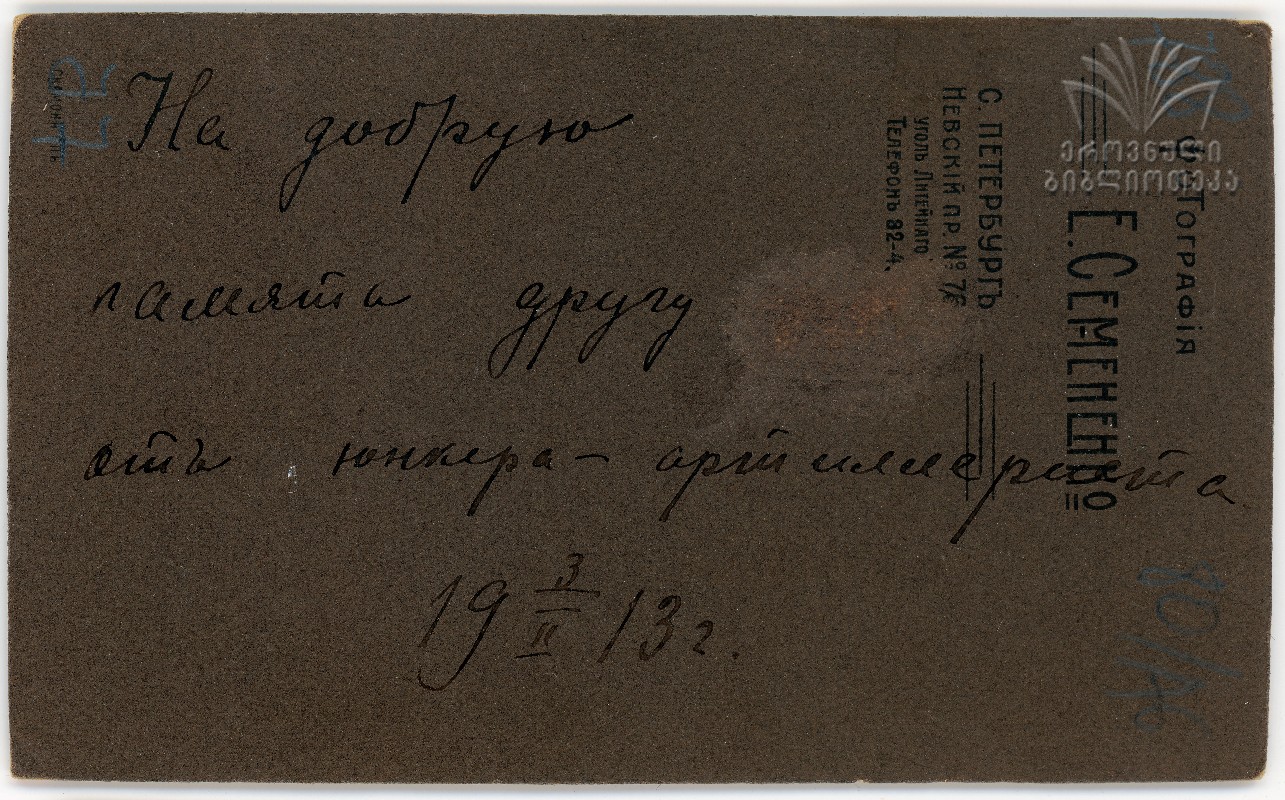 На добрую
память другу
отъ юнкера – артиллериста
19 3/II 13 г.
Фотографія
Е. Семененко
С. ПЕТЕРБУРГЪ
НЕВСКІЙ ПР. № 76
уголъ Литейнаго
Телефонъ 82–4.
ეროვნული
ბიბლიოთეკა